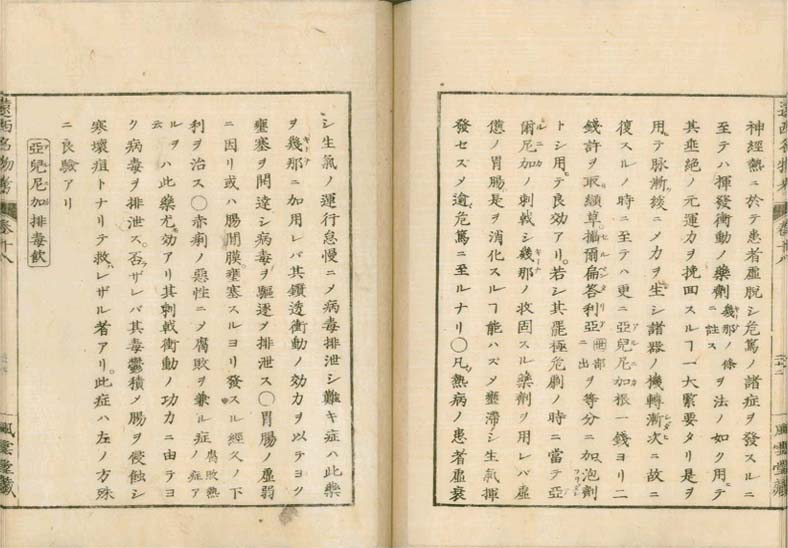 神經熱ニ於テ患者虛脫シ危篤ノ諸症ヲ發スルニ
至テハ揮發衝動ノ藥劑幾那ノ條ニ註スヲ法ノ如ク用テ
其垂絕ノ元運力ヲ挽回スルヿ一大緊要タリ是ヲ
用テ脉漸緩ニメ力ヲ生シ諸器ノ機轉漸次ニ故ニ
復スルノ時ニ至テハ更ニ亞兒尼加根一錢ヨリ二
錢許ヲ取纈草攝爾扁答利亞ヲ等分ニ加泡劑
トシ用テ良効アリ若シ其罷極危劇ノ時ニ當テ亞
爾尼加ノ刺戟シ幾那ノ收固スル藥劑ヲ用レバ虛
憊ノ胃腸是ヲ消化スルヿ能ハズメ壅滯シ生氣揮
發セズメ逾危篤ニ至ルナリ○凡熱病ノ患者虛衰
シ生氣ノ運行怠慢ニメ病毒排泄シ難キ症ハ此藥
ヲ幾那ニ加用レバ其鑽透衝動ノ効力ヲ以テヨク
壅塞ヲ開達シ病毒ヲ驅逐ヲ排泄ス○胃腸ノ虛弱
ニ因リ或ハ腸間膜壅塞スルヨリ發スル經久ノ下
利ヲ治ス○赤痢ノ惡性ニメ腐敗ヲ兼ル症腐敗熱ノ症アルヲハ此藥尤効アリ其刺戟衝動ノ功力ニ由テヨ
ク病毒ヲ排泄ス否ザレバ其毒鬱積メ腸ヲ侵蝕シ
寒壞疽トナリテ救レザル者アリ此症ハ左ノ方殊
ニ良驗アリ
亞兒尼加排毒飮
遠西名物考
卷十八
風雲堂藏